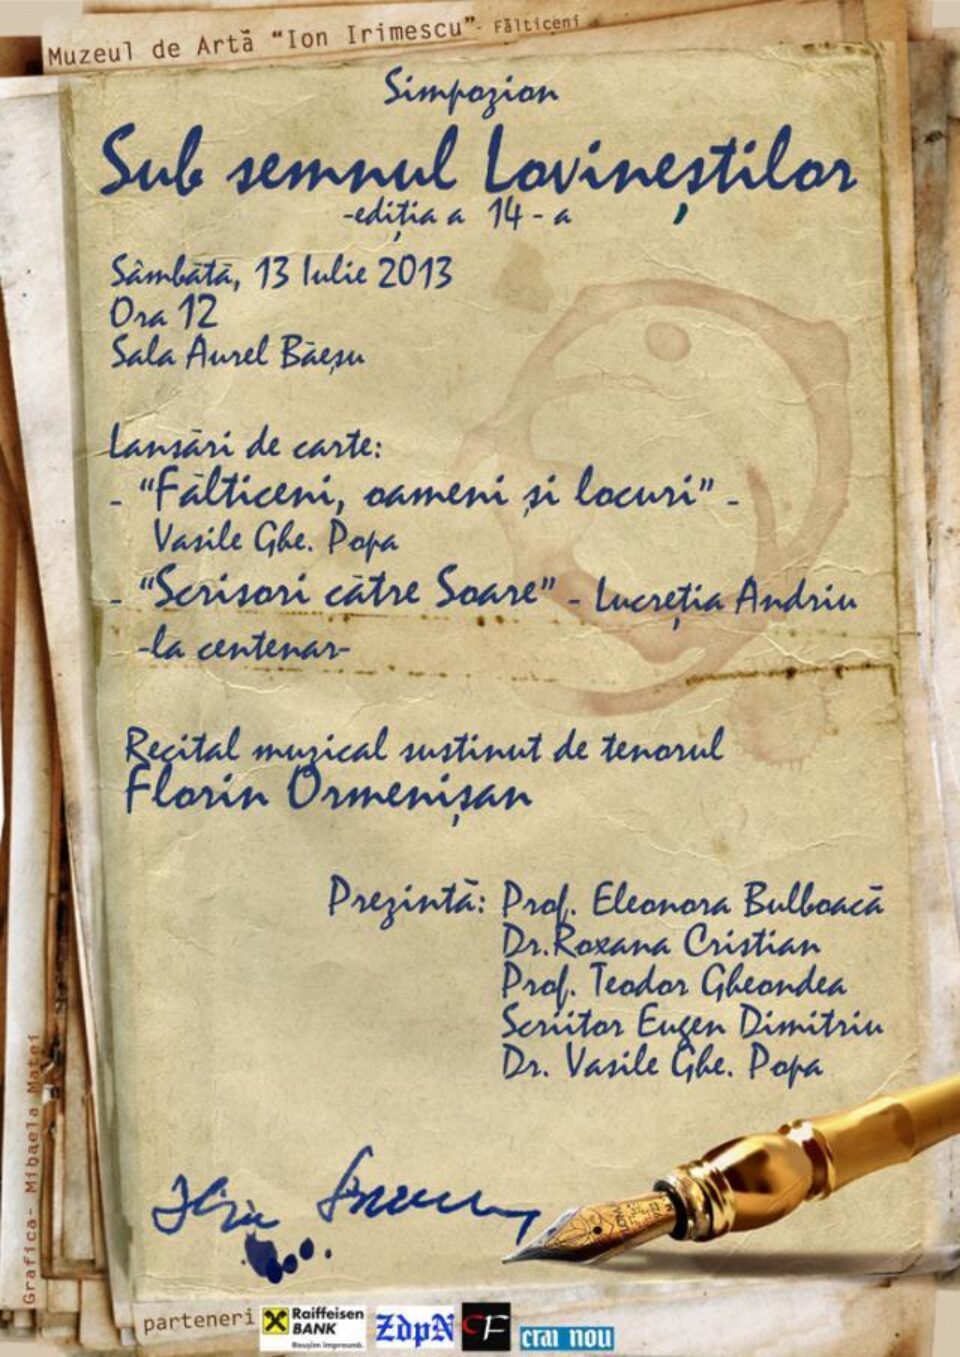 Muzeul de Artă "Ion Irimescu"- Fălticeni
Simpozion
Sub semnul Lovineștilor
-ediția a 14 - a
Sâmbătă, 13 Iulie 2013
Ora 12
Sala Aurel Băeșu
Lansări de carte:
- "Fălticeni, oameni și locuri" -
Vasile Ghe. Popa
- "Scrisori către Soare" - Lucreția Andriu
-la centenar-
Recital muzical sustinut de tenorul
Florin Ormenișan
Prezintă: Prof. Eleonora Bulboacă
Dr.Roxana Cristian
Prof. Teodor Gheondea
Scriitor Eugen Dimitriu
Dr. Vasile Ghe. Popa
Grafica- Mihaela Matei
parteneri
Raiffeisen
BANK
Reușim împreună.
ZdpN
CF
crai nou